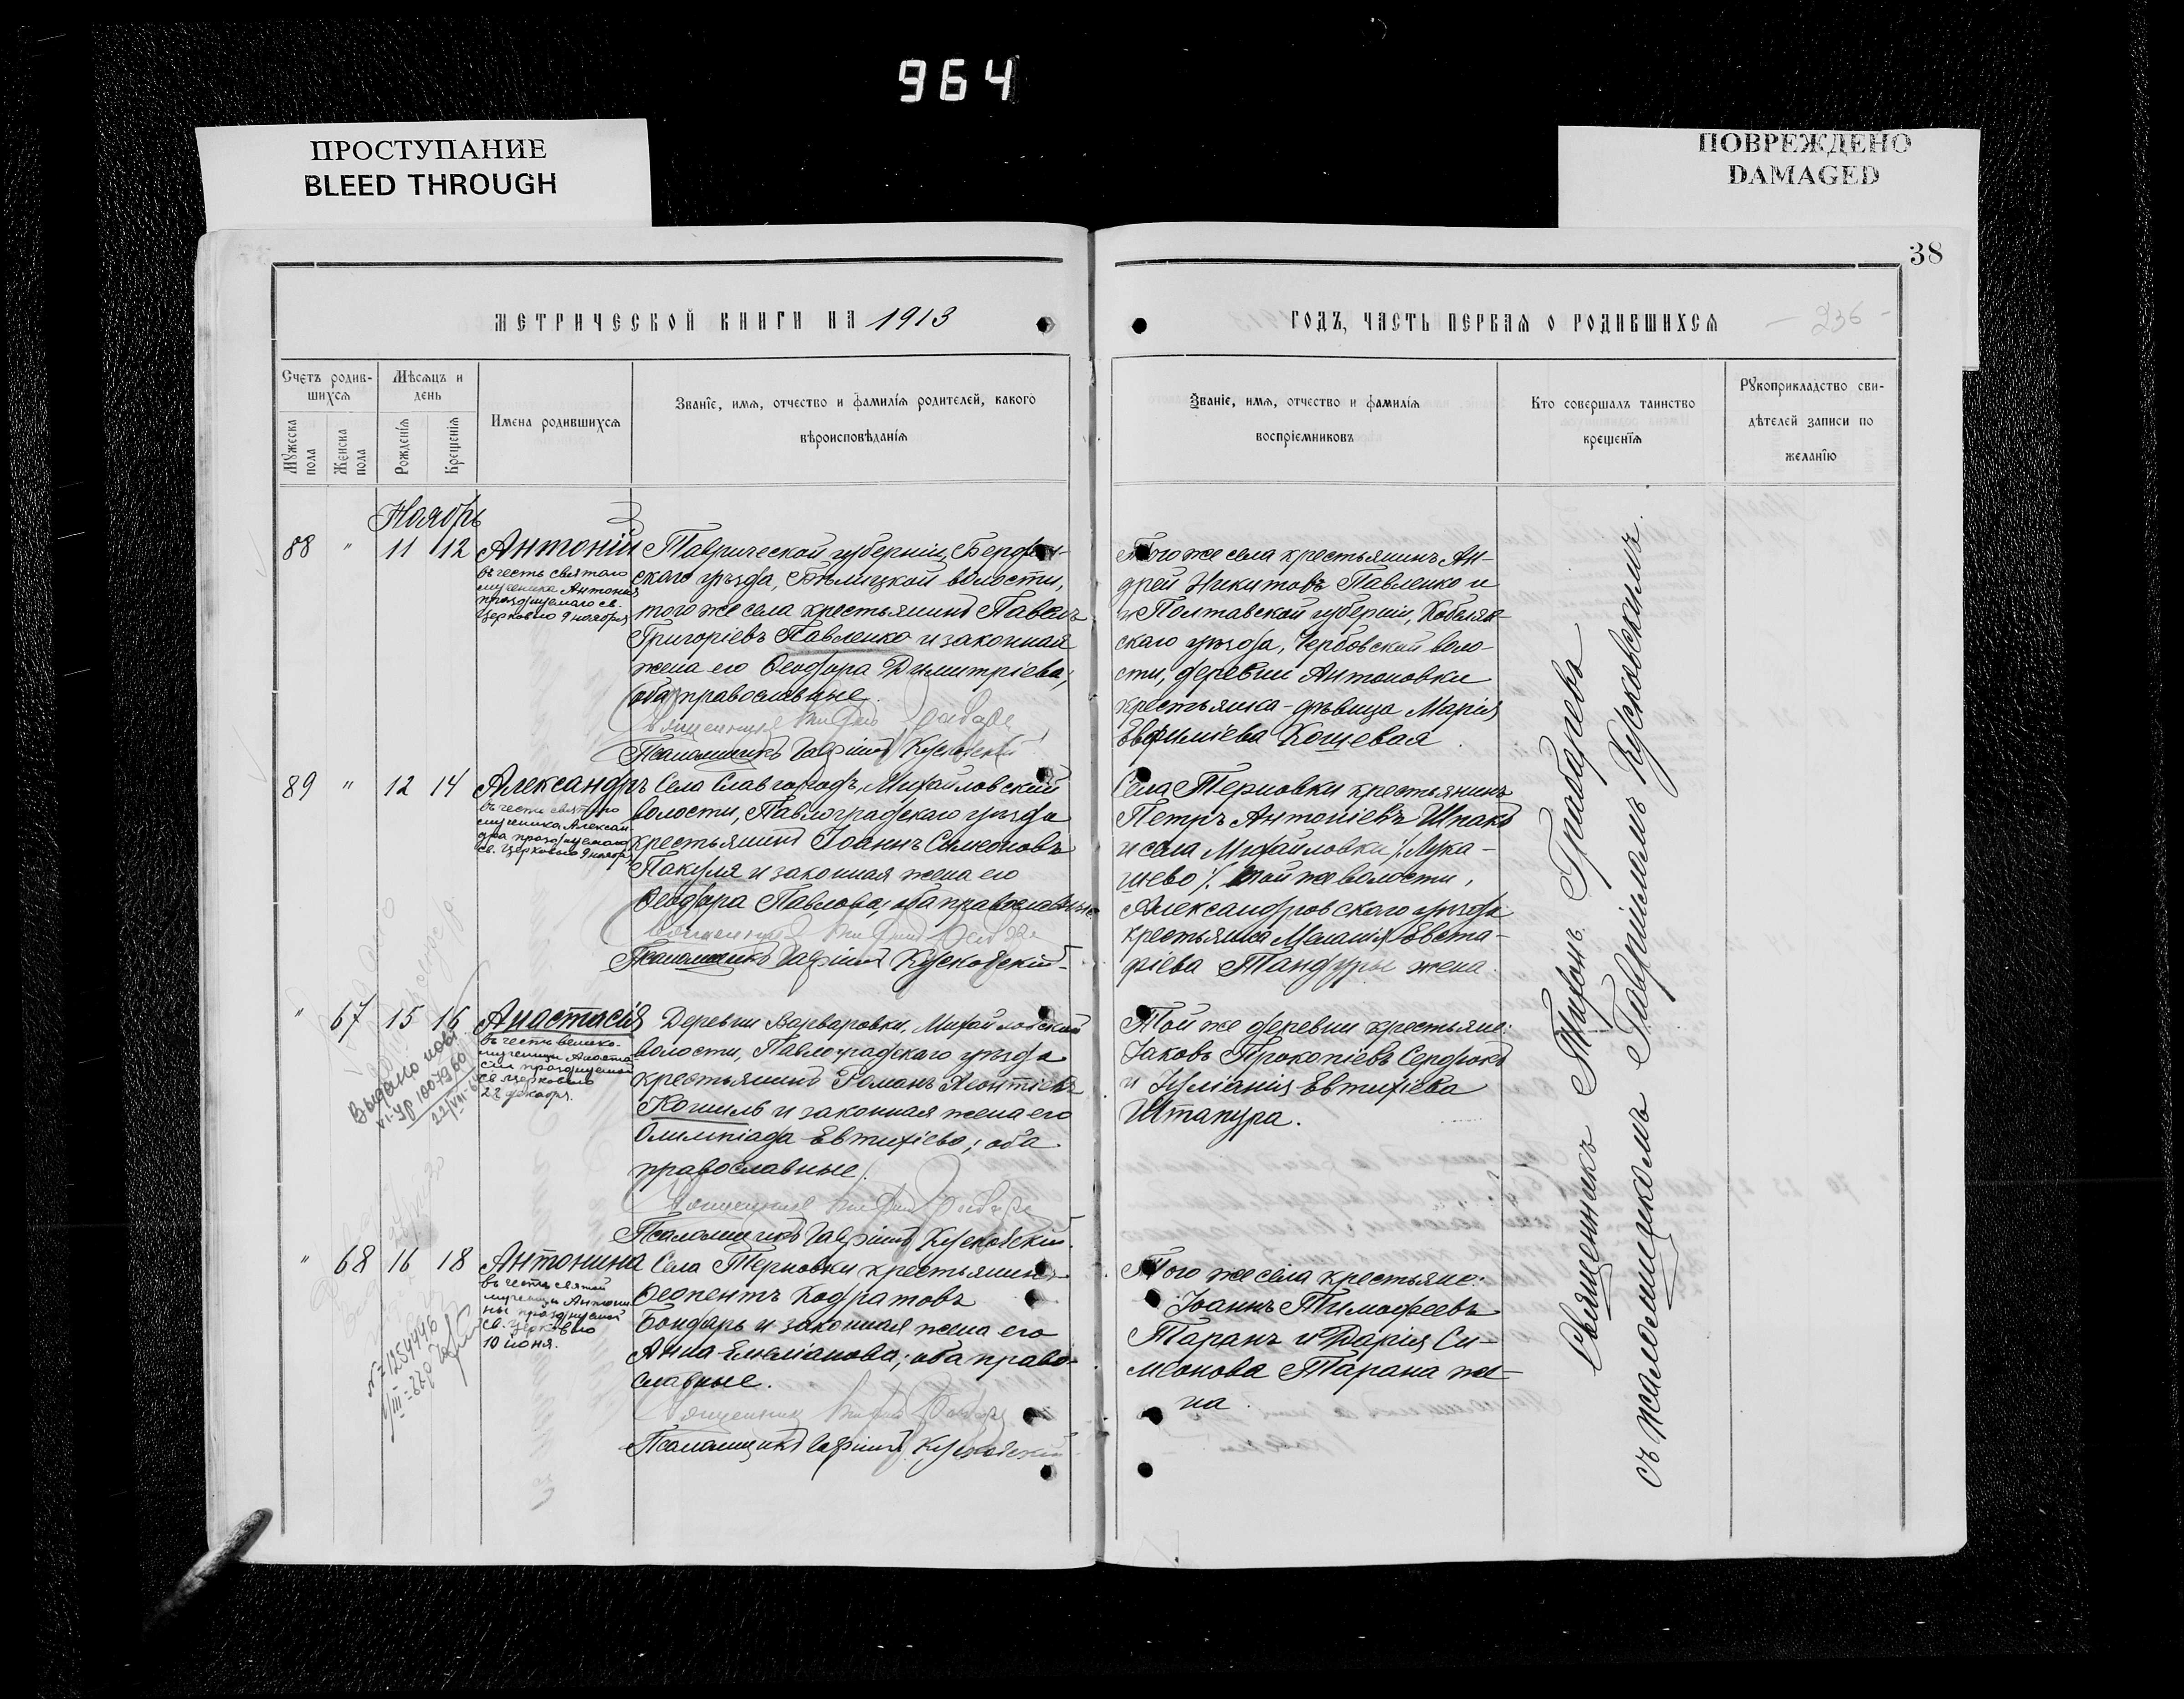 964
ПРОСТУПАНИЕ
BLEED THROUGH
ПОВРЕЖДЕНО
DAMAGED
38
МЕТРИЧЕСКОЙ КНИГИ НА 1913
ГОДЪ, ЧАСТЬ ПЕРВАЯ О РОДИВШИХСЯ
236
Счетъ родив-
шихся
Мужеска пола
Женска пола
Мѣсяцъ и
день
Рожденія
Крещенія
Имена родившихся
Званіе, имя, отчество и фамилія родителей, какого
вѣроисповѣданія
Званіе, имя, отчество и фамилія
воспріемниковъ
Кто совершалъ таинство
крещенія
Рукоприкладство сви-
дѣтелей записи по
желанію
Ноябрь
88 " 11 12 Антоній
въ честь святого
мученика Антонія
празднуемаго св.
Церковію 9 ноября
Таврической губерніи, Бердян-
скаго уѣзда, Бѣлицкой волости,
того же села крестьянинъ Павелъ
Григоріевъ Павленко и законная
жена его Ѳеодора Димитріева;
оба православные.
Священникъ
Псаломщикъ Гавріилъ Кусковскій
Того же села крестьянинъ Ан-
дрей Никитовъ Павленко и
Полтавской губерніи, Кобеляк-
скаго уѣзда, воло-
сти, деревни Антоновки
крестьянка-дѣвица Марія
Евфиміева Кошевая.
89 " 12 14 Александръ
въ честь святого
мученика Алексан
дра празднуемаго
св. Церковію 9 ноября
Села Славгородъ, Михайловской
волости, Павлоградскаго уѣзда
крестьянинъ Іоаннъ Симеоновъ
Пакуля и законная жена его
Ѳеодора Павлова; оба православные
Священникъ
Псаломщикъ Гавріилъ Кусковскій
Села Терновки крестьянинъ
Петръ Антоніевъ Шпакъ
и села Михайловки /Лука-
шево/ той же волости,
Александровскаго уѣзда
крестьянка Меланія Евста-
фіева Тандуры жена.
" 67 15 16 Анастасія
въ честь велико-
мученицы Анаста-
сіи празднуемой
св. Церковію
22 декабря.
Выдано повт.
Деревни Варваровки, Михайловской
волости, Павлоградскаго уѣзда
крестьянинъ Романъ Леонтіевъ
Кошиль и законная жена его
Олимпіада Евтихіева; оба
православные.
Священникъ
Псаломщикъ Гавріилъ Кусковскій.
Той же деревни крестьяне:
Іаковъ Прокопіевъ Сердюкъ
и Іуліанія Евтихіева
Штапура.
" 68 16 18 Антонина
въ честь святой
мученицы Антони
ны празднуемой
св. Церковію
10 іюня.
Села Терновки крестьянинъ
Ѳеопентъ Кодратовъ
Бондарь и законная жена его
Анна Емеліанова; оба право-
славные.
Священникъ
Псаломщикъ Гавріилъ Кусковскій
Того же села крестьяне:
Іоаннъ Тимофеевъ
Таранъ и Дарія Си-
меонова Тарана же-
на.
Священникъ Тихонъ Грабарёвъ
съ псаломщикомъ Гавріиломъ Кусковскимъ.